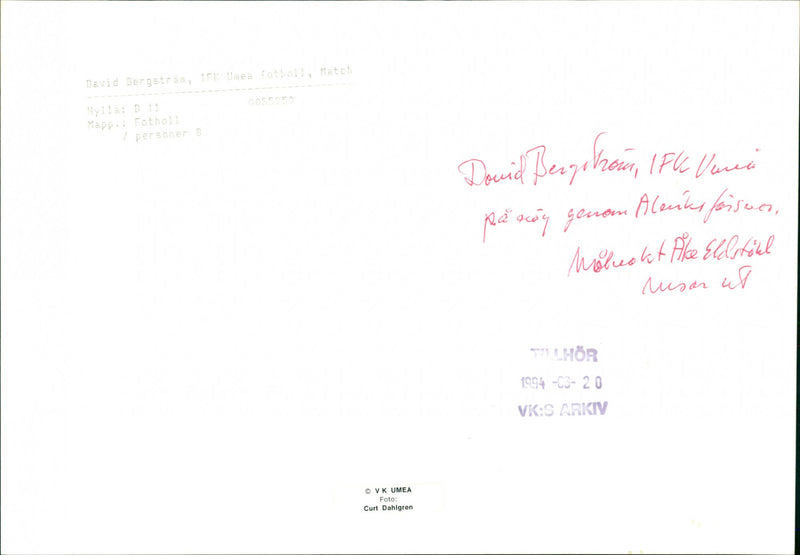 David Bergström, IFK Umeå fotboll, Match
Hylla: B 11
Mapp.: Fotboll
/ personer B
David Bergström, IFK Umeå
på väg genom Alviks försvar.
Målvakt Åke Eldståhl
rusar ut
TILLHÖR
1994 -03- 20
VK:S ARKIV
© VK UMEA
Foto:
Curt Dahlgren